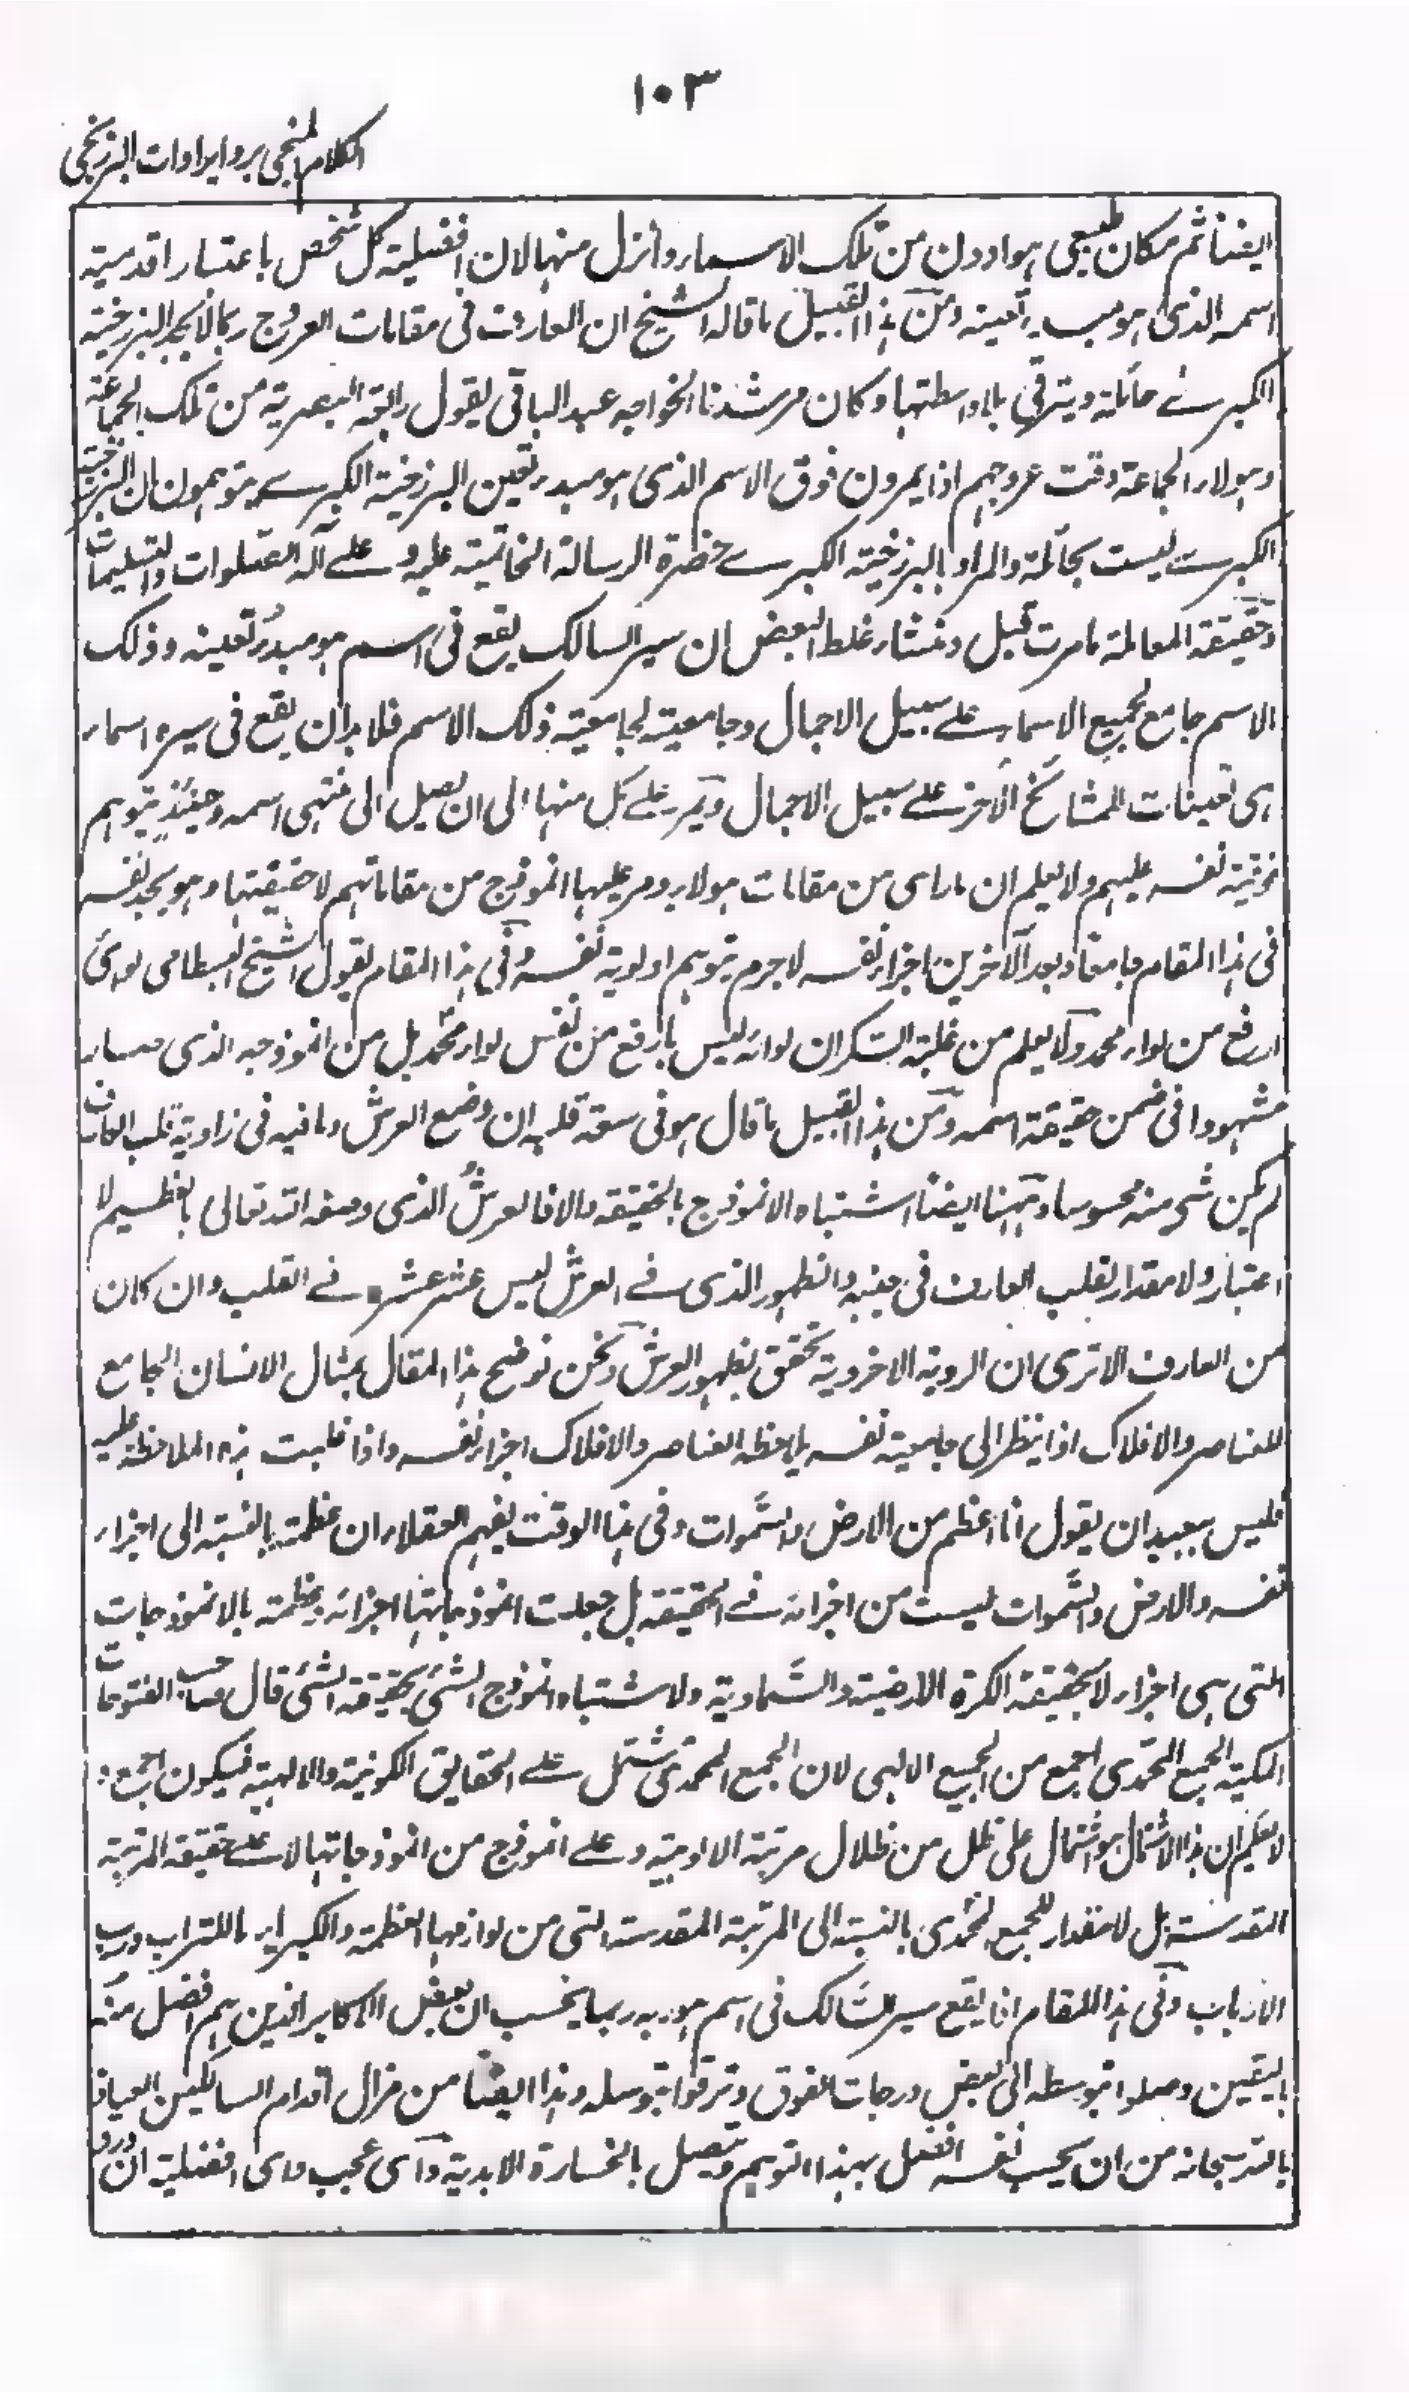 ١٠٣
الكلام المنجي برد ايرادات البرزنجي
ايضا ثم مكان طبيعي هو ادون من تلك الاسماء وانزل منها لان افضلية كل شخص باعتبار اقدمية
اسمه الذي هو مبدء تعينه ومن هذا القبيل ما قاله الشيخ ان العارف في مقامات العروج ربما لا يجد البرزخية
الكبرے حائلة ويترقي بلا واسطتها وكان مرشدنا الخواجه عبد الباقي يقول رابعة البصرية من تلك الجماعة
وهولاء الجماعة وقت عروجهم اذا يمرون فوق الاسم الذي هو مبدء تعين البرزخية الكبرے يتوهمون ان البرزخية
الكبرے ليست بحائلة والمراد بالبرزخية الكبرے حضرة الرسالة الخاتمية عليه وعلے آله الصلوات والتسليمات
وحقيقة المعاملة ما مرت قبل ومنشاء غلط البعض ان سير السالك يقع في اسم هو مبدء تعينه وذلك
الاسم جامع لجميع الاسماء علے سبيل الاجمال وجامعيته لجامعية ذلك الاسم فلا بد ان يقع في سيره اسماء
هي تعينات للمشائخ الآخر علے سبيل الاجمال ويمر علے كل منها الى ان يصل الى منتهى اسمه وحينئذ يتوهم
فوقية نفسه عليهم ولا يعلم ان ما راى من مقامات هولاء ومر عليها انموذج من مقاماتهم لا حقيقتها وهو يجد نفسه
في هذا المقام جامعا ويعد الآخرين اجزاء نفسه لا جرم يتوهم اولوية نفسه وفي هذا المقام يقول الشيخ البسطامي لوائ
ارفع من لواء محمد ولا يعلم من غلبة السكر ان لوائه ليس بارفع من نفس لواء محمد بل من انموذجه الذي صار
مشهودا في ضمن حقيقة اسمه ومن هذا القبيل ما قال هو في سعة قلبه ان وضع العرش وما فيه في زاوية قلب العارف
لم يكن شئ منه محسوسا وههنا ايضا اشتباه الانموذج بالحقيقة والا فالعرش الذي وصفه الله تعالى بالعظيم لا
اعتبار ولا مقدار لقلب العارف في جنبه والظهور الذي فے العرش ليس عشر عشره فے القلب وان كان
من العارف الا ترى ان الروية الاخروية تحقق بظهور العرش ونحن نوضح هذا المقال بمثال الانسان الجامع
للعناصر والافلاك اذا ينظر الى جامعية نفسه يلاحظ العناصر والافلاك اجزاء نفسه واذا غلبت هذه الملاحظة عليه
فليس ببعيد ان يقول انا اعظم من الارض والسموات وفي هذا الوقت يفهم العقلاء ان عظمته بالنسبة الى اجزاء
نفسه والارض والسموات ليست من اجزائه فے الحقيقة بل جعلت انموذجاتها اجزائه بعظمته بالانموذجات
التي هي اجزاء لا بحقيقة الكرة الارضية والسماوية ولاشتباه انموذج الشئ بحقيقة الشئ قال صاحب الفتوحات
المكية الجمع المحمدي اجمع من الجمع الالهي لان الجمع المحمدي يشتمل علے الحقايق الكونية والالهية فيكون اجمع :
لا يعلم ان هذا الاشتمال هو اشتمال على ظل من ظلال مرتبة الالوهية وعلے انموذج من انموذجاتها لا علے حقيقة المرتبة
المقدسة بل لا مقدار للجمع المحمدي بالنسبة الى المرتبة المقدسة التي من لوازمها العظمة والكبرياء ما للتراب ورب
الارباب وفي هذا المقام اذا يقع سير السالك في اسم هو ربه ربما يحسب ان بعض الاكابر الذين هم افضل منه
باليقين وصلوا بتوسطه الى بعض درجات الفوق وترقوا بتوسله وهذا ايضا من مزال اقدام السالكين العياذ
بالله سبحانه من ان يحسب نفسه افضل بهذا التوهم ويتصل بالخسارة الابدية وآى عجب واى افضلية ان ورد